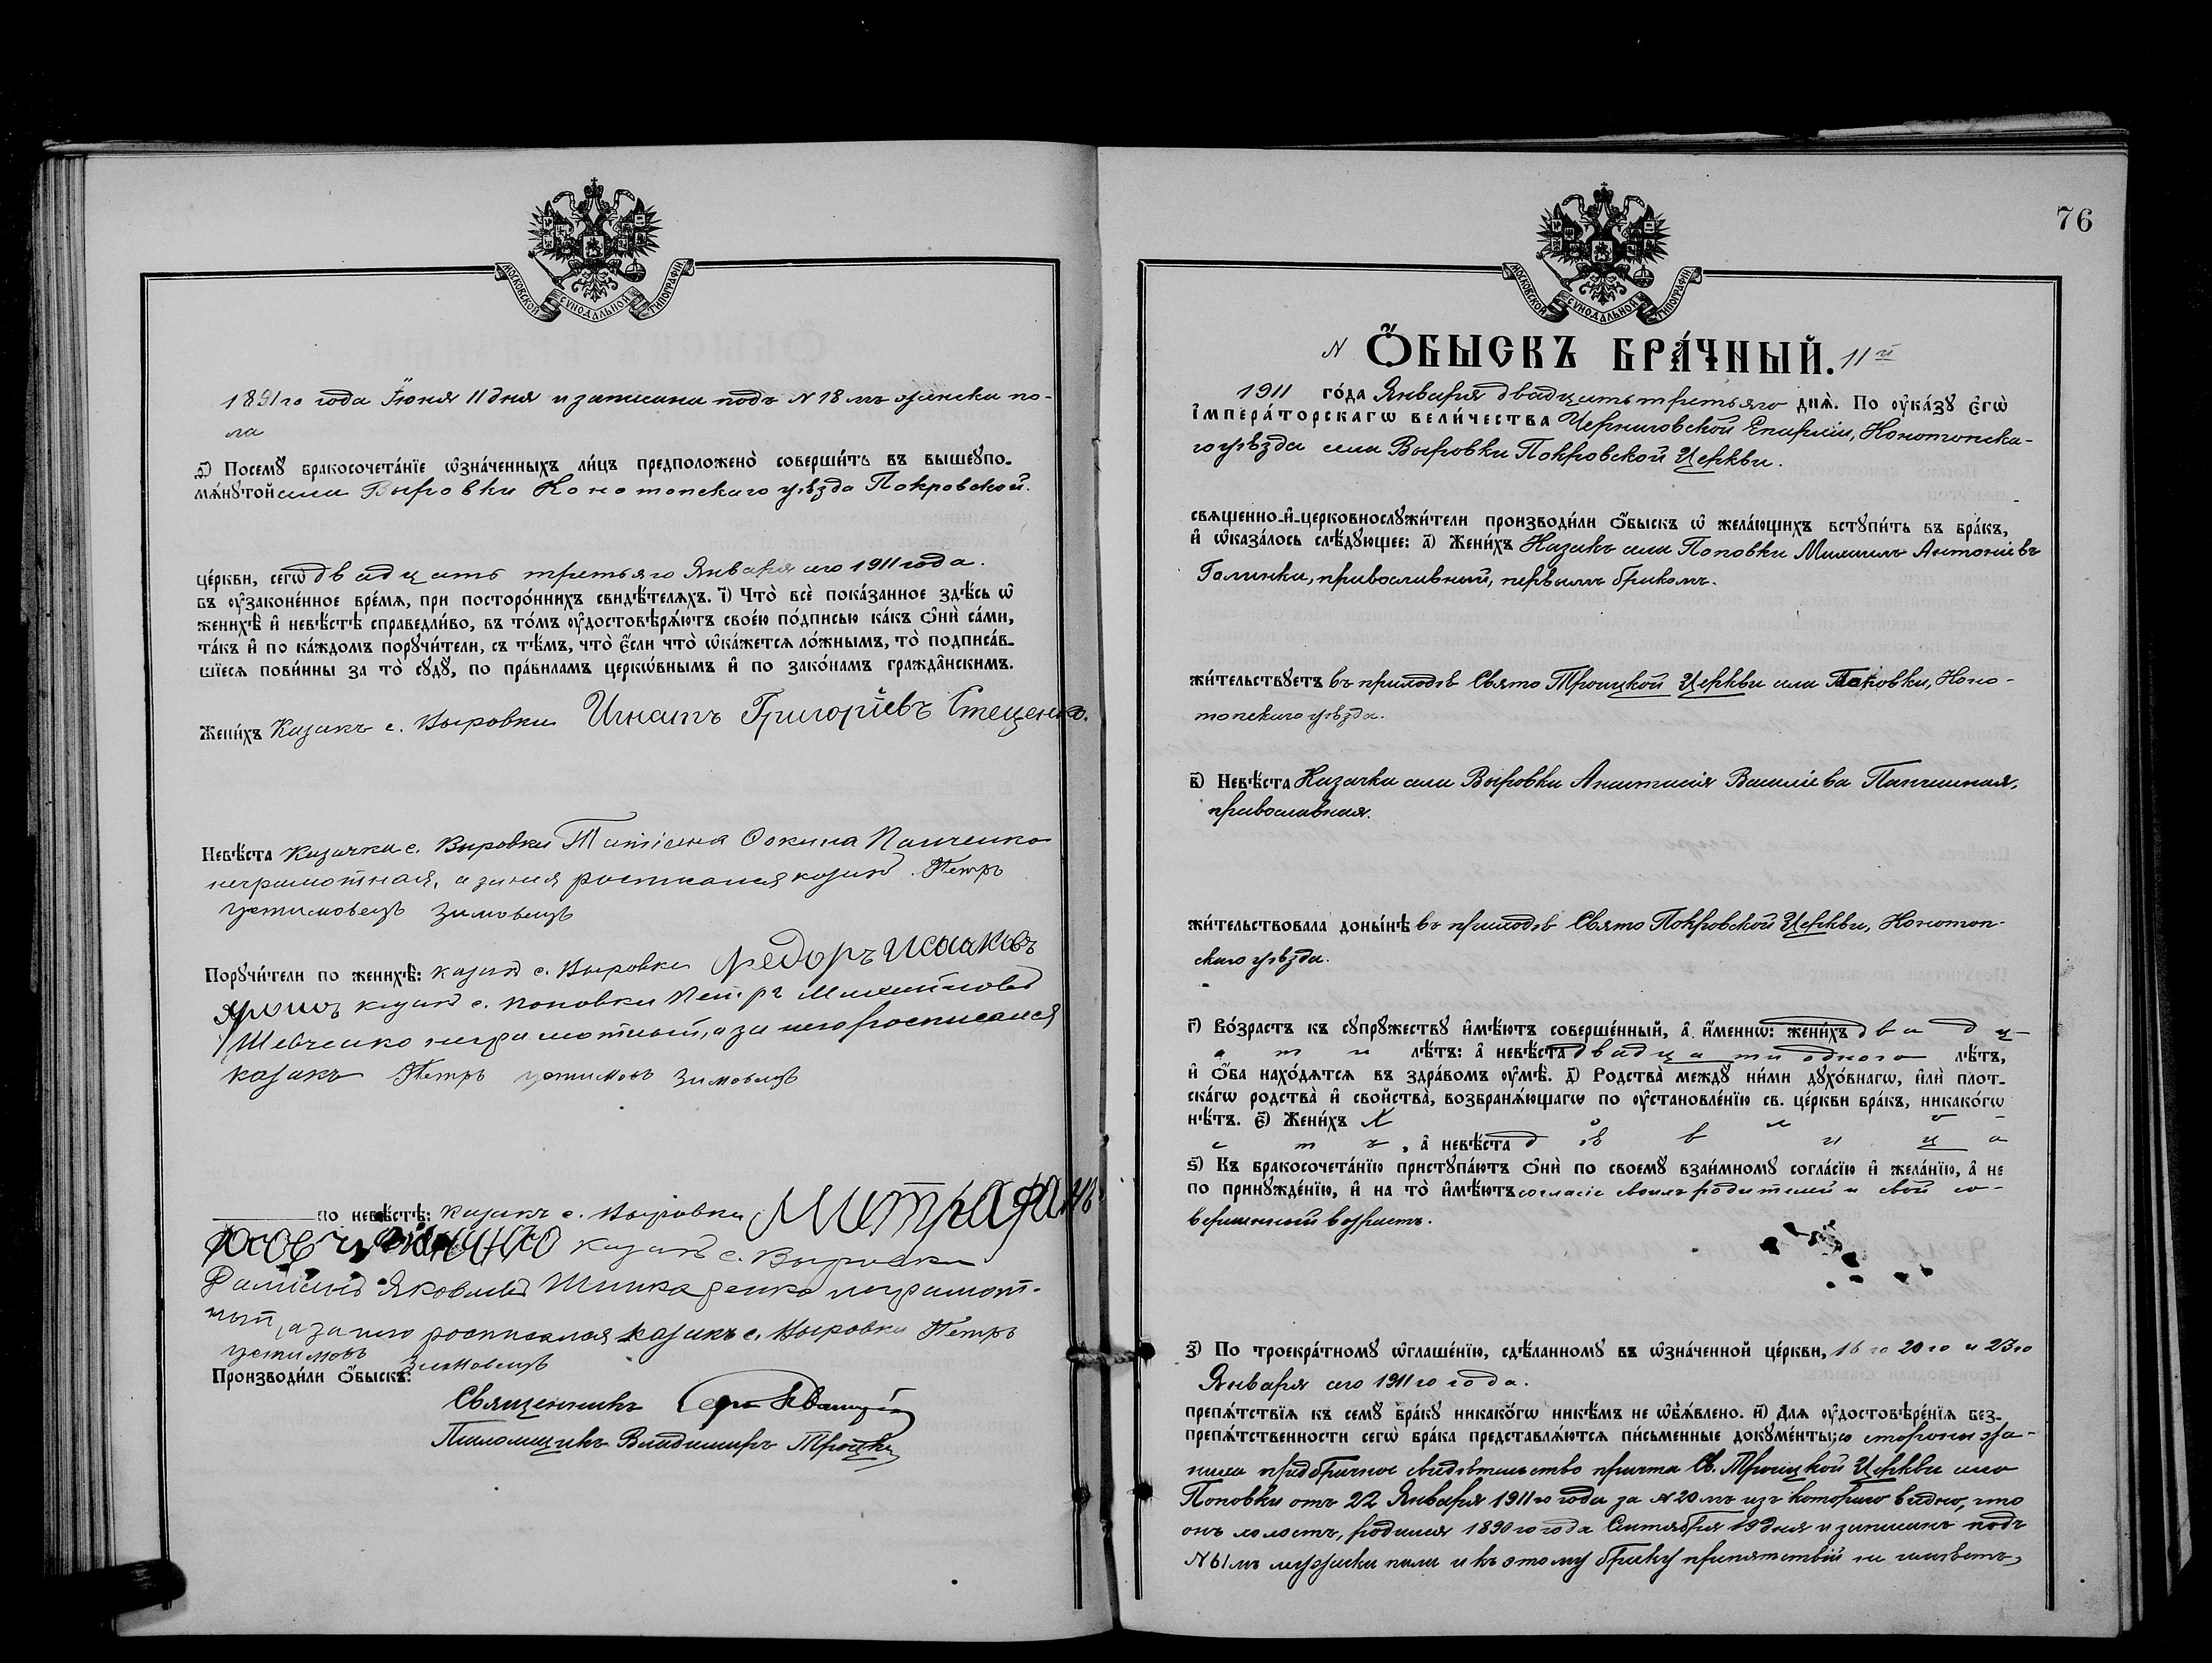 МОСКОВСКОЙ СУНОДАЛЬНОЙ ТИПОГРАФІИ
1891го года Іюня 11 дня и записана подъ N 18мъ женска по-
ла
д҃) Посемꙋ бракосочета́нїе ѡ҆зна́ченныхъ ли́цъ предположено̀ соверши́ть въ вышеꙋпо-
мѧ́нꙋтой села Выровки Конотопскаго уѣзда Покровской.
це́ркви, сегѡ̀ двадцать третьяго Января сего 1911 года.
въ ᲂу҆законе́нное вре́мѧ, при посторо́ннихъ свидѣ́телѧхъ. і҃) Что̀ всѐ пока́занное здѣ́сь ѡ҆
женихѣ̀ и҆ невѣ́стѣ справедли́во, въ то́мъ ᲂу҆достовѣрѧ́ютъ свое́ю по́дписью ка́къ ѻ҆нѝ са́ми,
та́къ и҆ по ка́ждомъ порꙋчи́тели, съ тѣ́мъ, что̀ є҆́сли что̀ ѡ҆ка́жетсѧ ло́жнымъ, то̀ подписа́в-
шїесѧ пови́нны за то̀ сꙋдꙋ̀, по пра́виламъ церкѡ́внымъ и҆ по зако́намъ гражда̑нскимъ.
Жени́хъ Казакъ с. Выровки Игнатъ Григорїевъ Стеценко.
Невѣ́ста Казачка с. Выровки Татіана Панченко
неграмотная, а за нея росписался козакъ Петръ
Устимовъ Зимовецъ
Порꙋчи́тели по женихѣ̀: казакъ с. Выровки Федоръ Исааковъ
казакъ с. Поповки Петръ
Шевченко неграмотный, а за него росписался
казакъ Петръ Устимовъ Зимовецъ
по невѣ́стѣ: казакъ с. Выровки Митрафанъ
казакъ с. Выровки
Яковлевъ неграмот-
ный, а за него росписался казакъ с. Выровки Петръ
Устимовъ Зимовецъ
Производи́ли ѻ҆́быскъ:
Священникъ
Псаломщикъ Владимиръ Троицкій
76
МОСКОВСКОЙ СУНОДАЛЬНОЙ ТИПОГРАФІИ
N Ѻ҆́БЫСКЪ БРА́ЧНЫЙ. 11й
1911 го́да Января двадцать третьяго днѧ̀. По ᲂу҆ка́зꙋ є҆гѡ̀
і҆мпера́торскагѡ вели́чества Черниговской Епархіи, Конотопска-
го уѣзда села Выровки Покровской Церкви.
свѧщенно-и҆-церковнослꙋжи́тели производи́ли ѻ҆́быскъ ѡ҆ жела́ющихъ встꙋпи́ть въ бра́къ,
и҆ ѡ҆каза́лось слѣ́дꙋющее: а҃) Жени́хъ Казакъ села Поповки Михаилъ Антоніевъ
Галинка, православный, первымъ бракомъ.
жи́тельствꙋетъ въ приходѣ Свято Троицкой Церкви села Поповки, Коно-
топскаго уѣзда.
в҃) Невѣ́ста Казачка села Выровки Анастасія Василіева
православная.
жи́тельствовала доны́нѣ въ приходѣ Свято Покровской Церкви, Конотоп-
скаго уѣзда.
г҃) Во́зрастъ къ сꙋпрꙋ́жествꙋ и҆мѣ́ютъ соверше́нный, а҆ и҆́меннѡ: жени́хъ двадц-
ати лѣ́тъ: а҆ невѣ́ста двадцати одного лѣ́тъ,
и҆ ѻ҆́ба нахо́дѧтсѧ въ здра́вомъ ᲂу҆мѣ̀. д҃) Родства̀ междꙋ̀ ни́ми дꙋхо́внагѡ, и҆лѝ плот-
ска́гѡ родства̀ и҆ свойства̀, возбранѧ́ющагѡ по ᲂу҆становле́нїю св. це́ркви бра́къ, никако́гѡ
нѣ́тъ. є҃) Жени́хъ Холо-
стъ, а҆ невѣ́ста дѣвица
ѕ҃) Къ бракосочета́нїю пристꙋпа́ютъ ѻ҆нѝ по своемꙋ̀ взаи́мномꙋ согла́сїю и҆ жела́нїю, а҆ не
по принꙋжде́нїю, и҆ на то̀ и҆мѣ́ютъ согласіе своихъ родителей и свой со-
вершенный возрастъ.
з҃) По троекра́тномꙋ ѡ҆глаше́нїю, сдѣ́ланномꙋ въ ѡ҆зна́ченной це́ркви, 16го 20го и 23го
Января сего 1911го года.
препѧ́тствїѧ къ семꙋ̀ бра́кꙋ никако́гѡ никѣ́мъ не ѡ҆б̾ѧ́влено. и҃) Длѧ ᲂу҆достовѣре́нїѧ без-
препѧ́тственности сегѡ̀ бра́ка представлѧ́ютсѧ пи́сьменные докꙋме́нты: со стороны же-
ниха предбрачное свидѣтельство причта Св. Троицкой Церкви села
Поповки отъ 22 Января 1911го года за N 20мъ изъ котораго видно, что
онъ холостъ, родился 1890го года Сентября 19 дня и записанъ подъ
N 61мъ мужска пола и къ этому браку препятствій не имѣетъ,